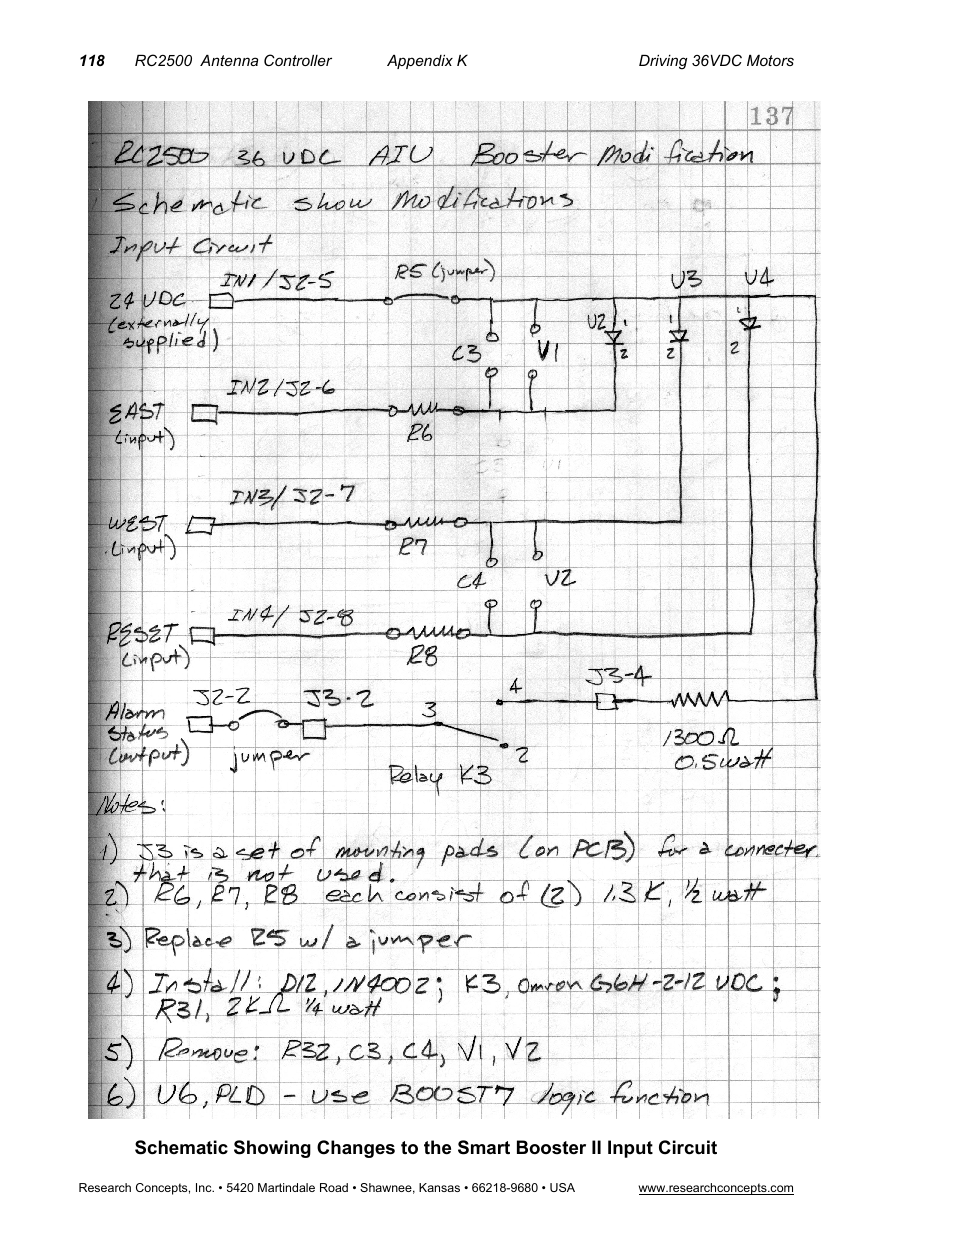 118 RC2500 Antenna Controller Appendix K Driving 36VDC Motors
137
RC2500 36 VDC AIU Booster Modification
Schematic show Modifications
Input Circuit
IN1/J2-5 R5 (jumper) U3 U4
24 VDC
(externally
supplied)
U2 1 1 1
C3 V1 2 2 2
IN2/J2-6
EAST
(input)
R6
IN3/J2-7
WEST
(input)
R7
C4 V2
IN4/J2-8
RESET
(input)
R8
J3-4
J2-2 J3-2 3 4
Alarm
Status
(output)
jumper
2
1300Ω
0.5watt
Relay K3
Notes:
1) J3 is a set of mounting pads (on PCB) for a connecter
that is not used.
2) R6, R7, R8 each consist of (2) 1.3K, 1/2 watt
3) Replace R5 w/ a jumper
4) Install: D12, 1N4002; K3, Omron G6H-2-12 VDC;
R31, 2KΩ 1/4 watt
5) Remove: R32, C3, C4, V1, V2
6) U6, PLD - use BOOST7 logic function
Schematic Showing Changes to the Smart Booster II Input Circuit
Research Concepts, Inc. • 5420 Martindale Road • Shawnee, Kansas • 66218-9680 • USA www.researchconcepts.com